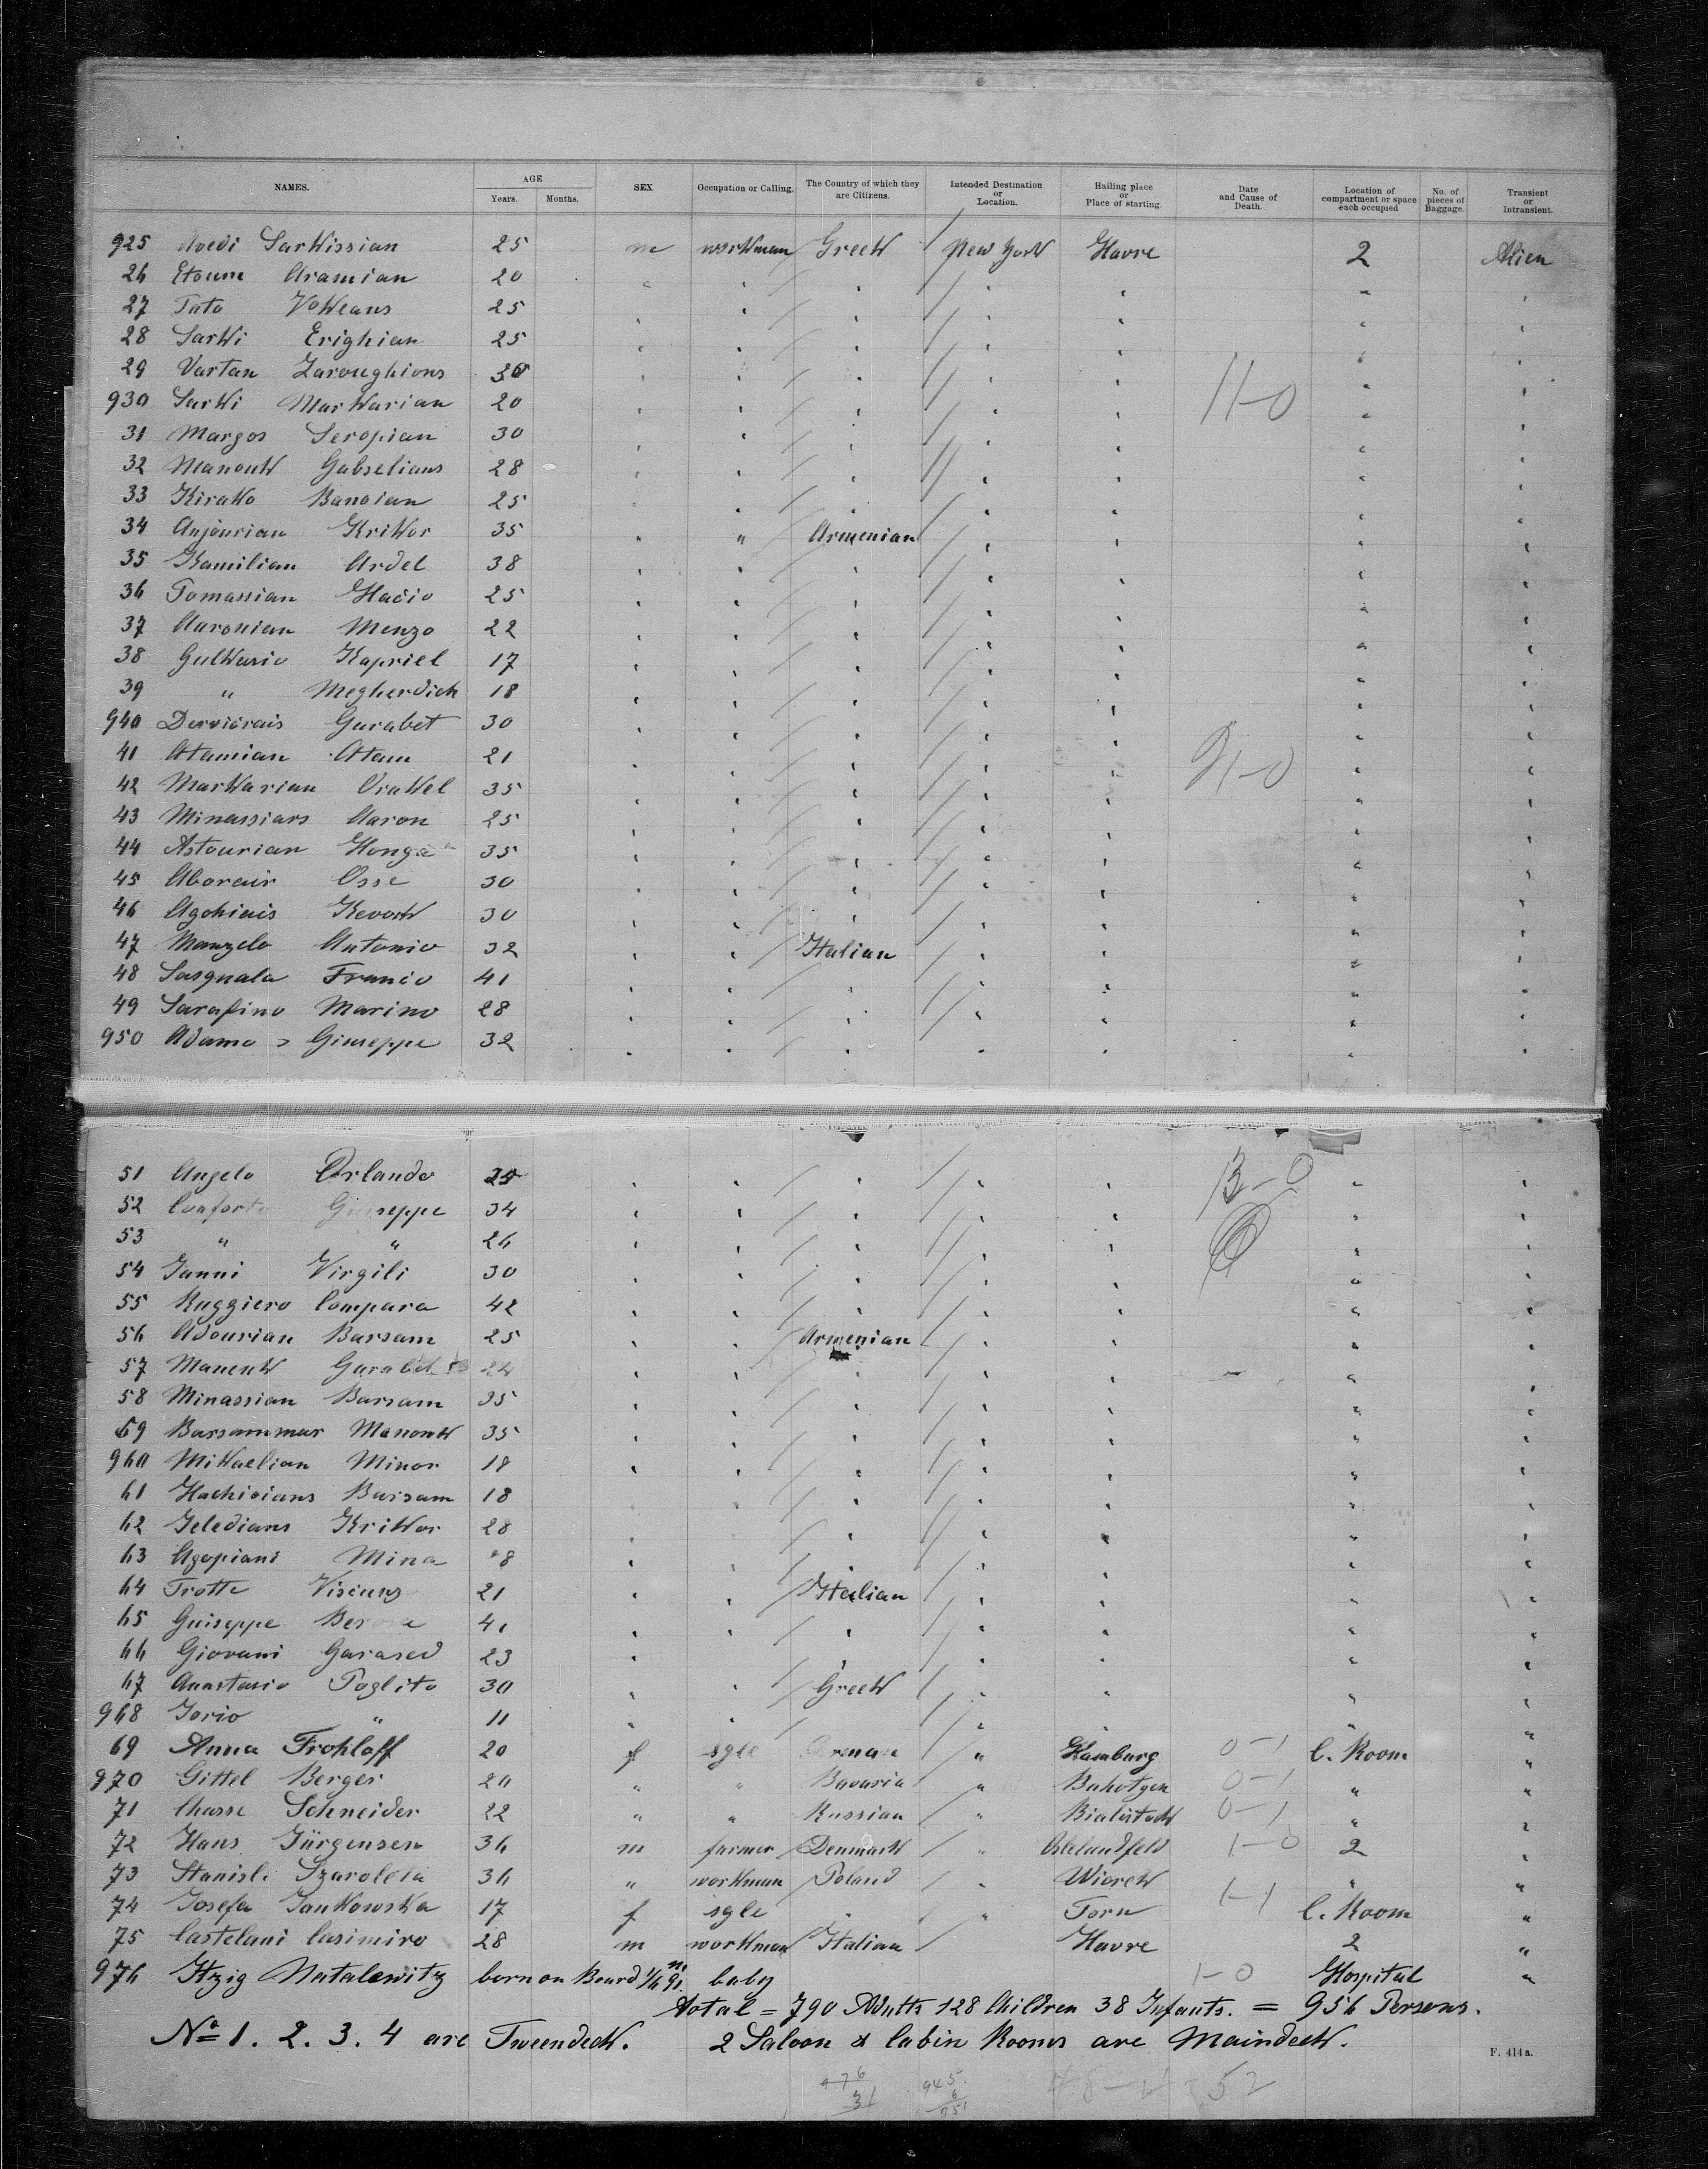 NAMES. AGE Years. Months. SEX Occupation or Calling. The Country of which they are Citizens. Intended Destination or Location. Hailing place or Place of starting. Date and Cause of Death. Location of compartment or space each occupied No. of pieces of Baggage. Transient or Intransient.
925 Avedi Sarkissian 25 m workman Greek New York Havre 2 Alien
26 Etoum Aramian 20
27 Tato Vokeans 25
28 Sarki Erighian 25
29 Vartan Zaroughions 30
930 Sarki Markarian 20 11-0
31 Margos Seropian 30
32 Manouk Gabselians 28
33 Kirako Banoian 25
34 Anjourian Krikor 35 " " Armenian
35 Kamilian Ardel 38
36 Tomassian Hacio 25
37 Aaronian Menzo 22
38 Gulkasio Kapriel 17
39 " Megherdich 18
940 Garabet 30
41 Atamian Atam 21 21-0
42 Markarian Orakel 35
43 Minassiars Aaron 25
44 Astourian 35
45 Aborair Osse 30
46 Kevork 30
47 Manzelo Antonio 32 Italian
48 Sasgnala Francio 41
49 Sarafino Marino 28
950 Adamo Giuseppe 32
51 Angelo Orlando 25 13-0
52 Conforte Giuseppe 34
53 " " 26
54 Ianni Virgili 30
55 Ruggiero Compara 42
56 Adourian Barsam 25 Armenian
57 Manenk Garabet 24
58 Minassian Barsam 35
59 Barsammar Manouk 35
960 Mikaelian Minor 18
61 Hachioians Barsam 18
62 Jeledians Krikor 28
63 Agopiani Mina
64 Trotte Italian 21
65 Guiseppe 41
66 Giovani Garased 23
67 Anastasio Poglito 30 Greek
968 Jorio " 11
69 Anna Frohloff 20 f sgle German " Hamburg 0-1 C. Room "
970 Gittel Berger 20 " " Bavaria " 0-1 " "
71 Chasse Schneider 22 " " Russian " Bialistock 0-1 " "
72 Hans Jürgensen 36 m farmer Denmark " 1-0 2
73 Stanisl. 36 " workman Poland " "
74 Josefa Jankowska 17 f sgle " " Torn 1-1 C. Room "
75 Castelani Casimiro 28 m workman Italian Havre 2 "
976 Itzig Natalewitz born on Board baby 1-0 Hospital "
Total = 790 Adults 128 Children 38 Infants. = 956 Persons.
No 1. 2. 3. 4 are Tweendeck. 2 Saloon & Cabin Rooms are Maindeck.
F. 414 a.
976 945. 48-4=52
31 6
951